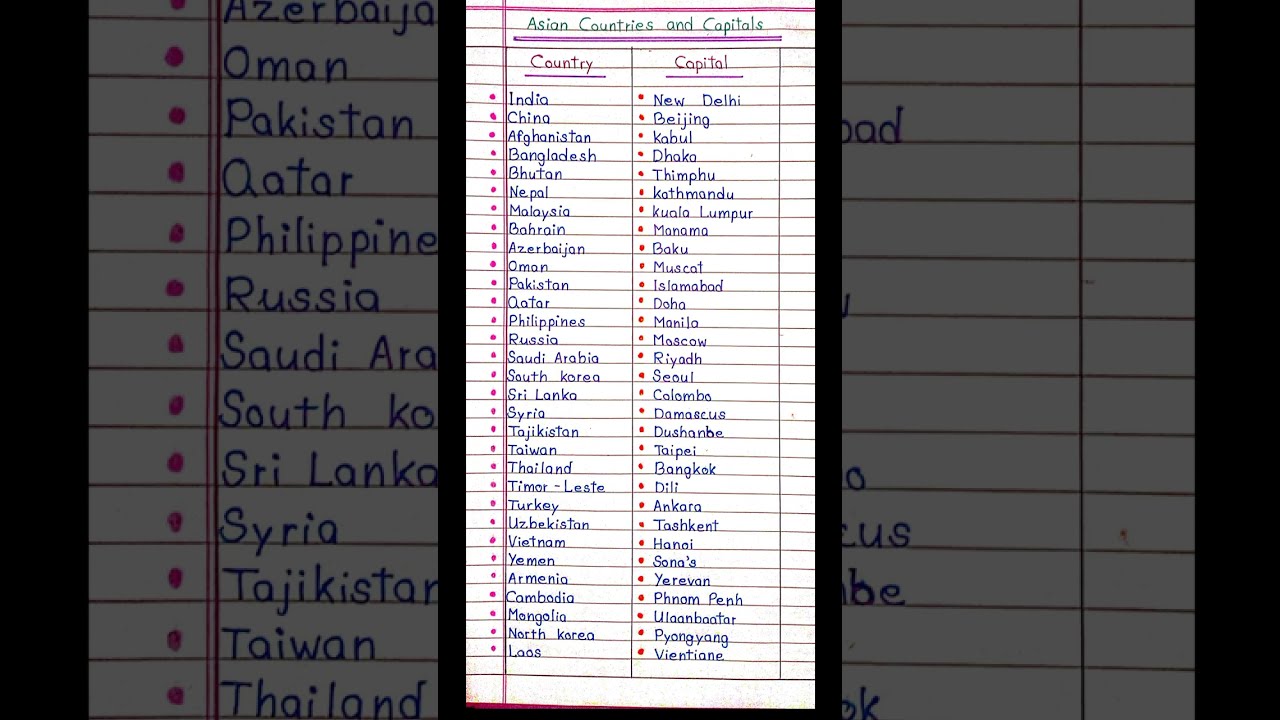 Asian Countries and Capitals
Country Capital
• India • New Delhi
• China • Beijing
• Afghanistan • Kabul
• Bangladesh • Dhaka
• Bhutan • Thimphu
• Nepal • kathmandu
• Malaysia • kuala Lumpur
• Bahrain • Manama
• Azerbaijan • Baku
• Oman • Muscat
• Pakistan • Islamabad
• Qatar • Doha
• Philippines • Manila
• Russia • Moscow
• Saudi Arabia • Riyadh
• South korea • Seoul
• Sri Lanka • Colombo
• Syria • Damascus
• Tajikistan • Dushanbe
• Taiwan • Taipei
• Thailand • Bangkok
• Timor - Leste • Dili
• Turkey • Ankara
• Uzbekistan • Tashkent
• Vietnam • Hanoi
• Yemen • Sona's
• Armenia • Yerevan
• Cambodia • Phnom Penh
• Mongolia • Ulaanbaatar
• North korea • Pyongyang
• Laos • Vientiane
Azerbaija
• Oman
• Pakistan
• Qatar
• Philippine
• Russia
• Saudi Ara
• South ko
• Sri Lanka
• Syria
• Tajikistan
• Taiwan
• Thailand
bad
cus
be
ok